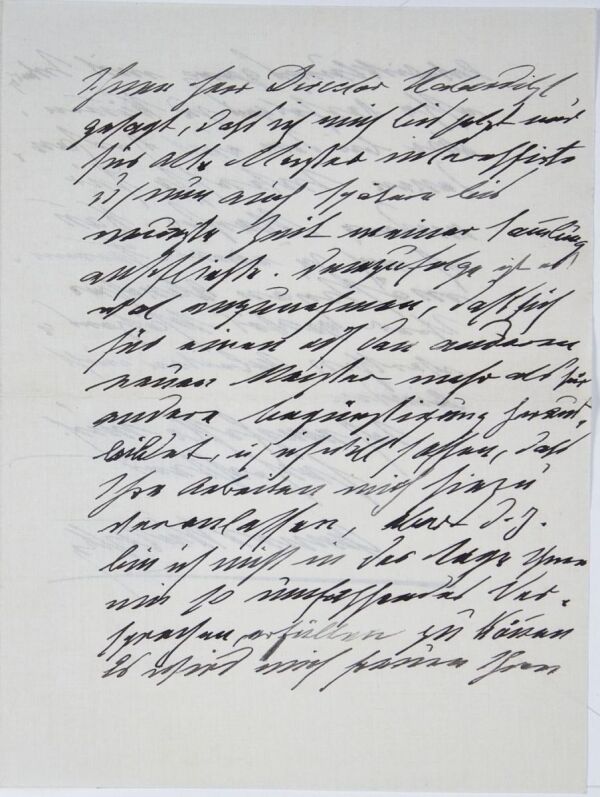 Ihnen Herr Director
gesagt, daß ich mich bis jetzt nur
für alte Meister interessirte
u. nun auch spätere bis
neuste Zeit meiner Samlung
anschließe. Demzufolge ist es
wol anzunehmen, daß sich
für einen od den anderen
neuen Meister mehr als für
andere begünstigung heraus-
bildet, u. ich will hoffen, daß
Ihre Arbeiten mich hiezu
veranlassen, aber d. Z.
bin ich nicht in der Lage Ihnen
ein so umfassendes Ver-
sprechen erfüllen zu können
Es wird mich freuen Ihren